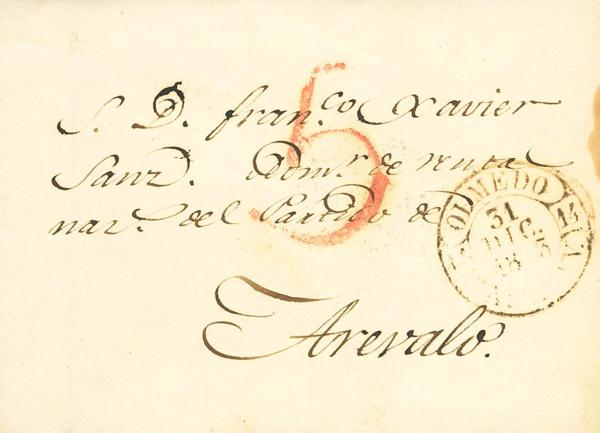 5
S. D. Fran.co Xavier
Sanz. Adm.r de renta
nar.s del Partido de
Arevalo.
OLMEDO
31
DIC
18